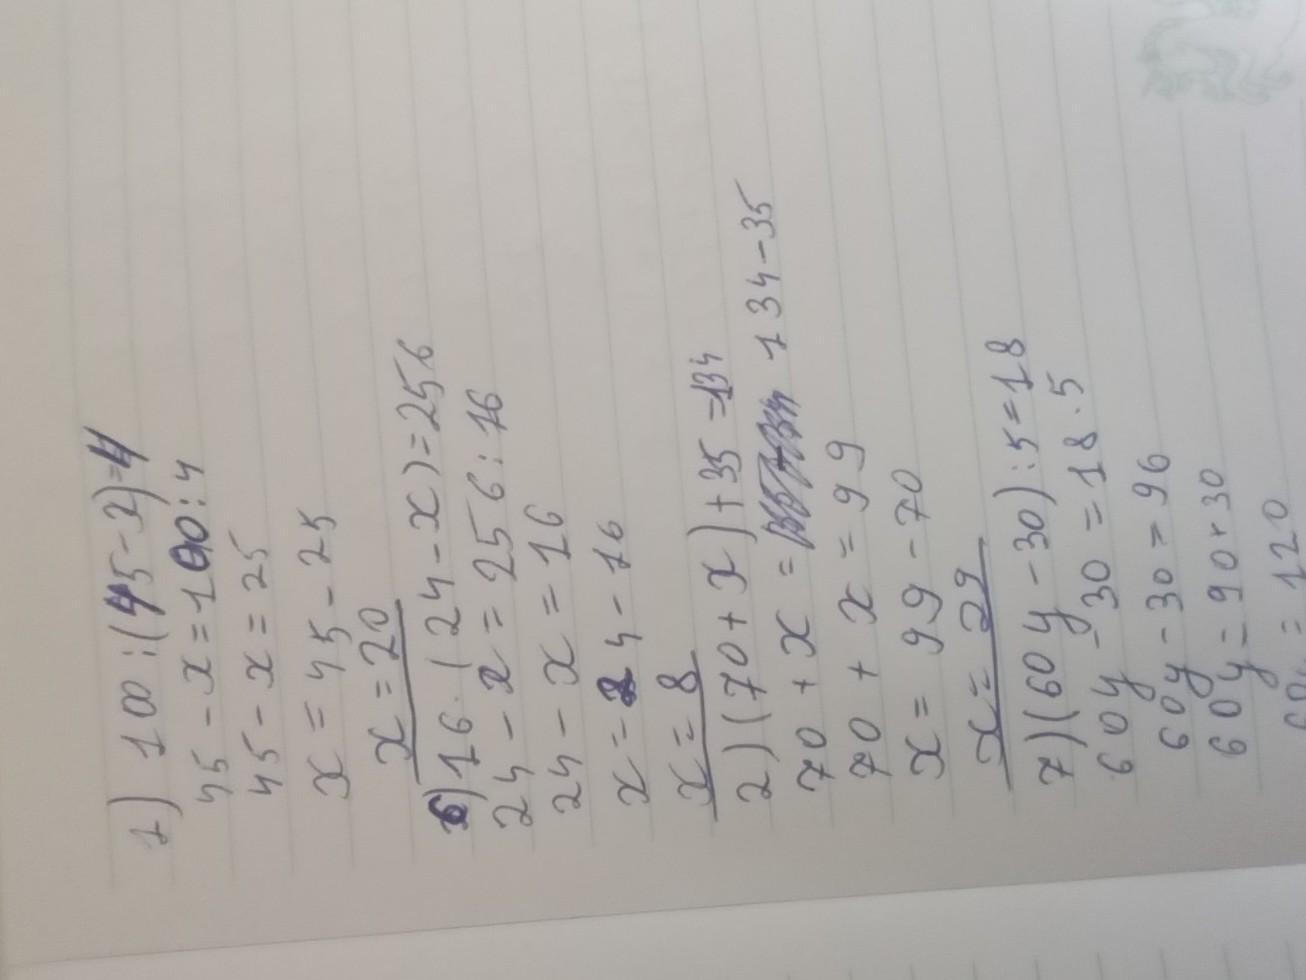 1) 100:(45-x)=4
45-x=100:4
45-x=25
x=45-25
x=20
6) 16·(24-x)=256
24-x=256:16
24-x=16
x=24-16
x=8
2) (70+x)+35=134
70+x= 134-35
70+x=99
x=99-70
x=29
7) (60y-30):5=18
60y-30=18·5
60y-30=96
60y=90+30
60y=120